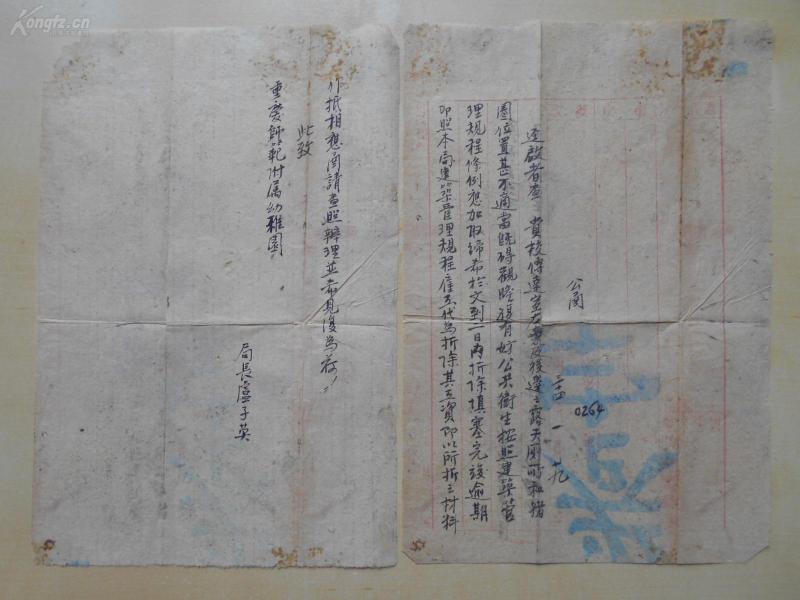 Kongfz.cn
公函
三四 一 十九
0264
逕啟者查 貴校傳達室左旁及後邊之露天厠所和豬
圈位置甚不適當既碍觀瞻復有妨公共衛生按照建築管
理規程條例應加取締希於文到一日內拆除填塞完竣逾期
即照本局建築管理規程僱工代為拆除其工資即以所拆之材料
作抵相應函請查照辦理並希見復為荷
此致
重慶師範附屬幼稚園
局長盧子英